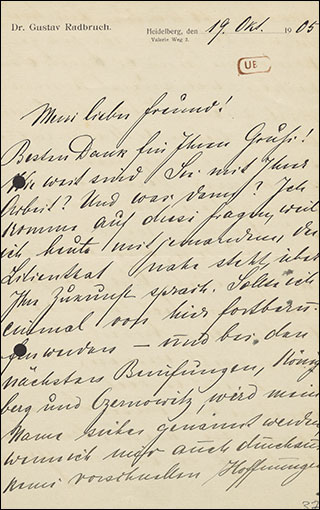 Dr. Gustav Radbruch.
Heidelberg, den 19. Okt. 1905
Valerie Weg 2.
UB
Mein lieber Freund!
Besten Dank für Ihren Gruß!
Wie weit sind Sie mit Ihrer
Arbeit? Und was dann? Ich
komme auf diese Fragen, weil
ich heute mit jemandem, der
Lilienthal nahe steht über
Ihre Zukunft sprach. Sollte ich
einmal von hier fortberu-
fen werden – und bei den
nächsten Berufungen, Königs
berg und Czernowitz, wird mein
Name sicher genannt werden
wenn ich mir auch durchaus
keine vorschnellen Hoffnungen